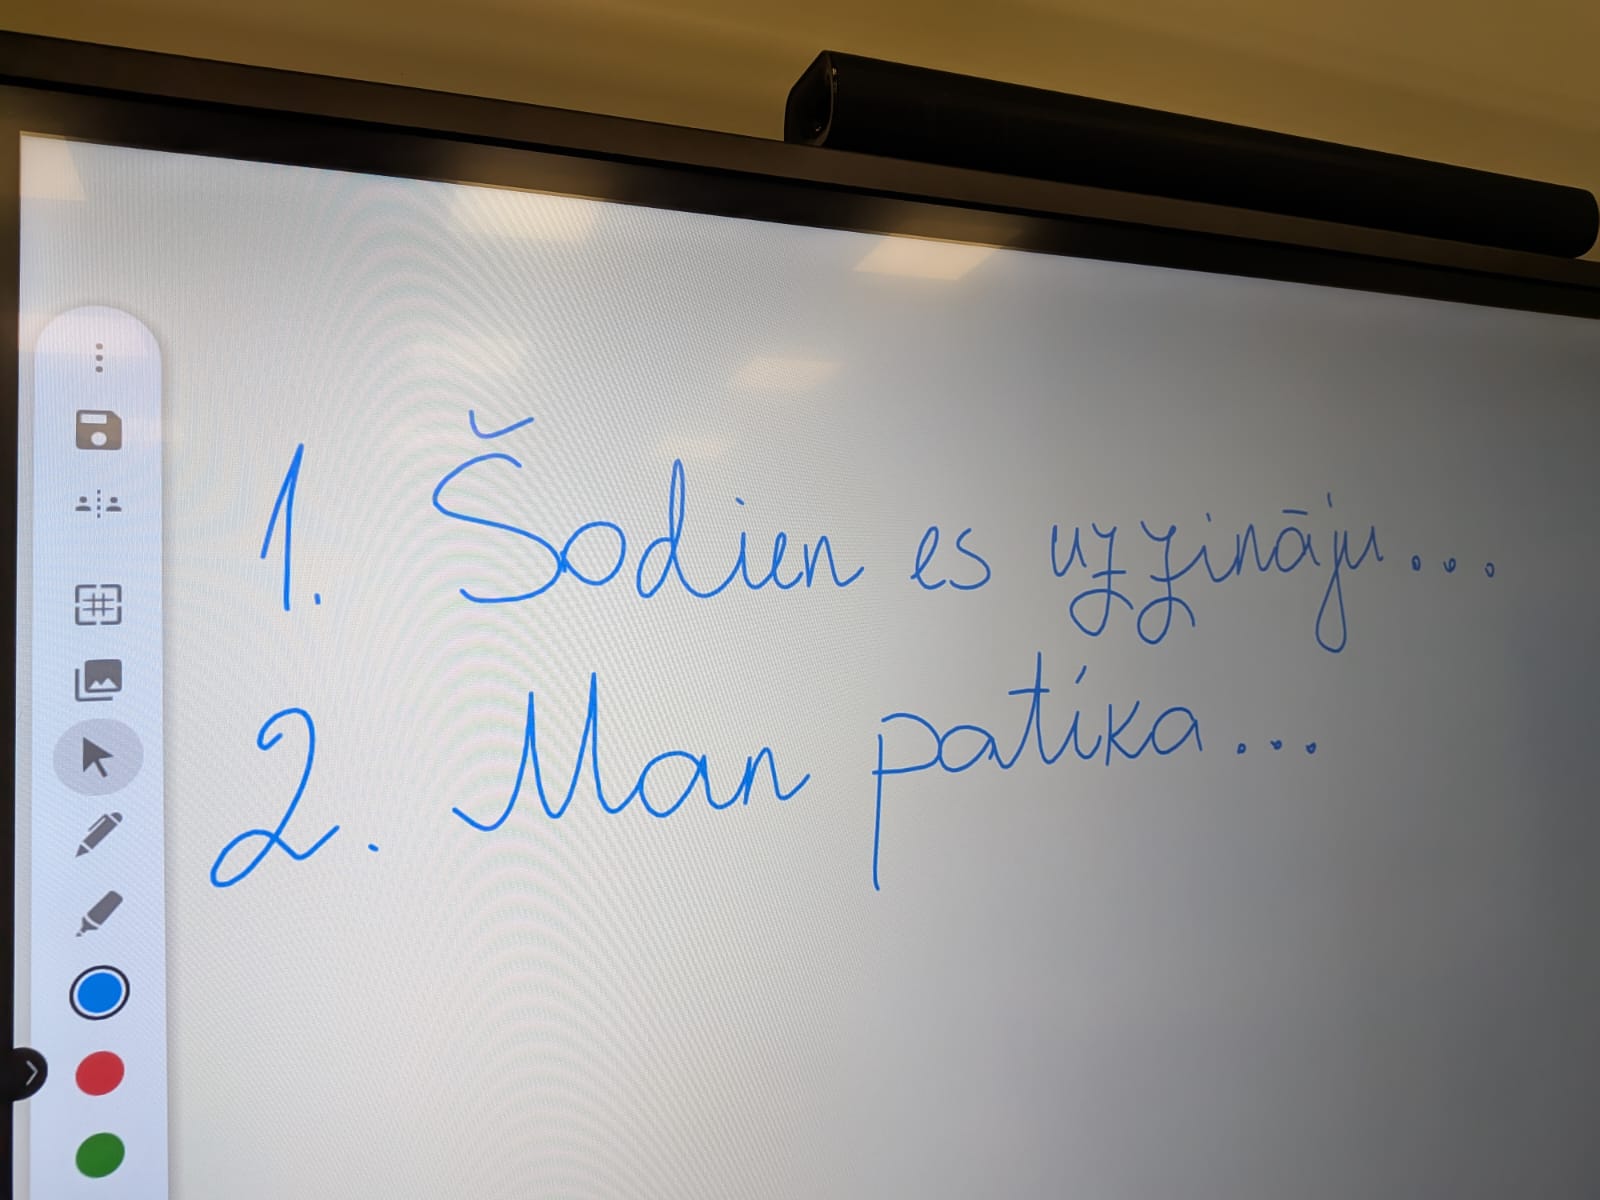 1. Šodien es uzzināju...
2. Man patika...